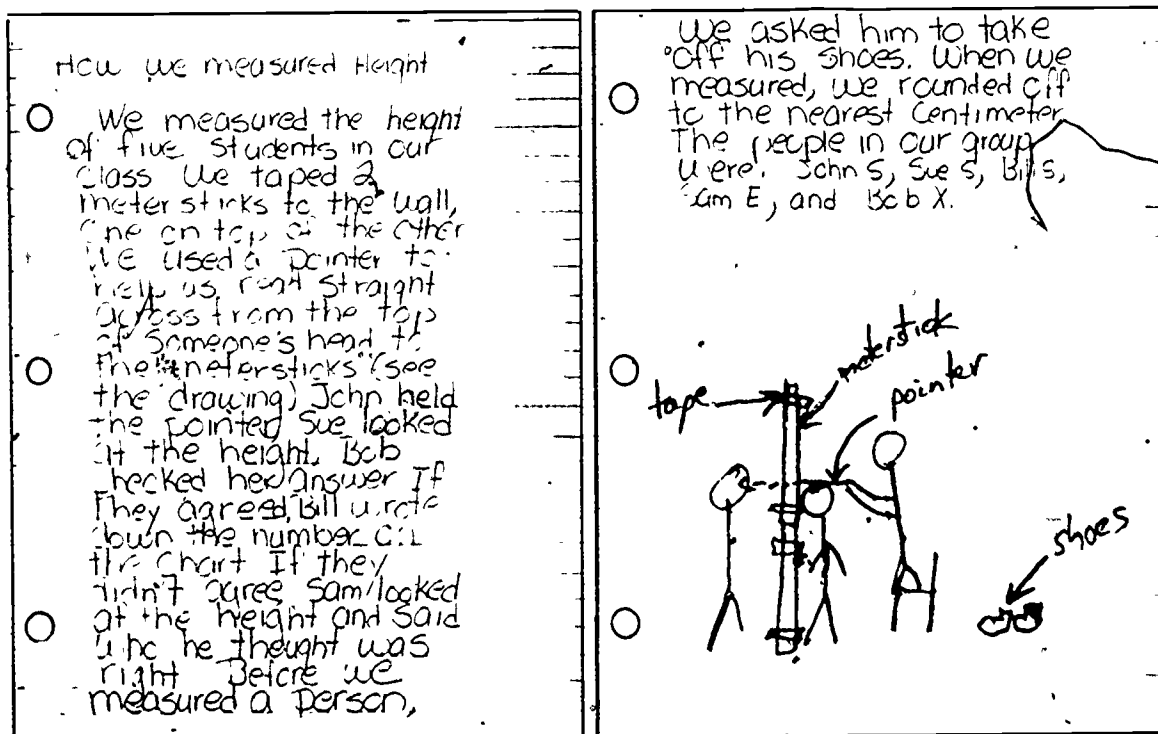 How we measured Height
We measured the height
of five students in our
class We taped 2
meter sticks to the wall,
one on top of the other
We used a pointer to
help us read straight
across from the top
of someone's head to
the metersticks (see
the drawing) John held
the pointer, Sue looked
at the height, Bob
checked her answer If
they agreed, Bill wrote
down the number on
the chart If they
didn't agree, Sam looked
at the height and said
who he thought was
right Before we
measured a person,
We asked him to take
off his shoes. When we
measured, we rounded off
to the nearest centimeter
The people in our group
were: John S, Sue S, Bill S,
Sam E, and Bob X.
meterstick
tape
pointer
shoes